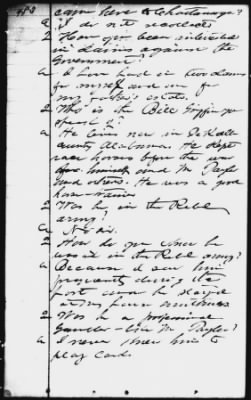 came here to Chattanooga?
a I do not recollect
2 Have you been interested
in claims against the
Government?
a I have had in two claims
for myself and one for
my father's estate.
2 Who is the Bill Griffin you
speak of?
a He lives now in DeKalb
county Alabama. He kept
race horses before the war
himself and Mr Taylor
and others. He was a good
horse trainer
2 Was he in the Rebel
army?
a No sir.
2 How do you know he
was not in the Rebel army?
a Because I saw him
frequently during the
last and he stayed
at my house sometimes
2 Was he a professional
Gambler - like Mr Taylor?
a I never knew him to
play cards